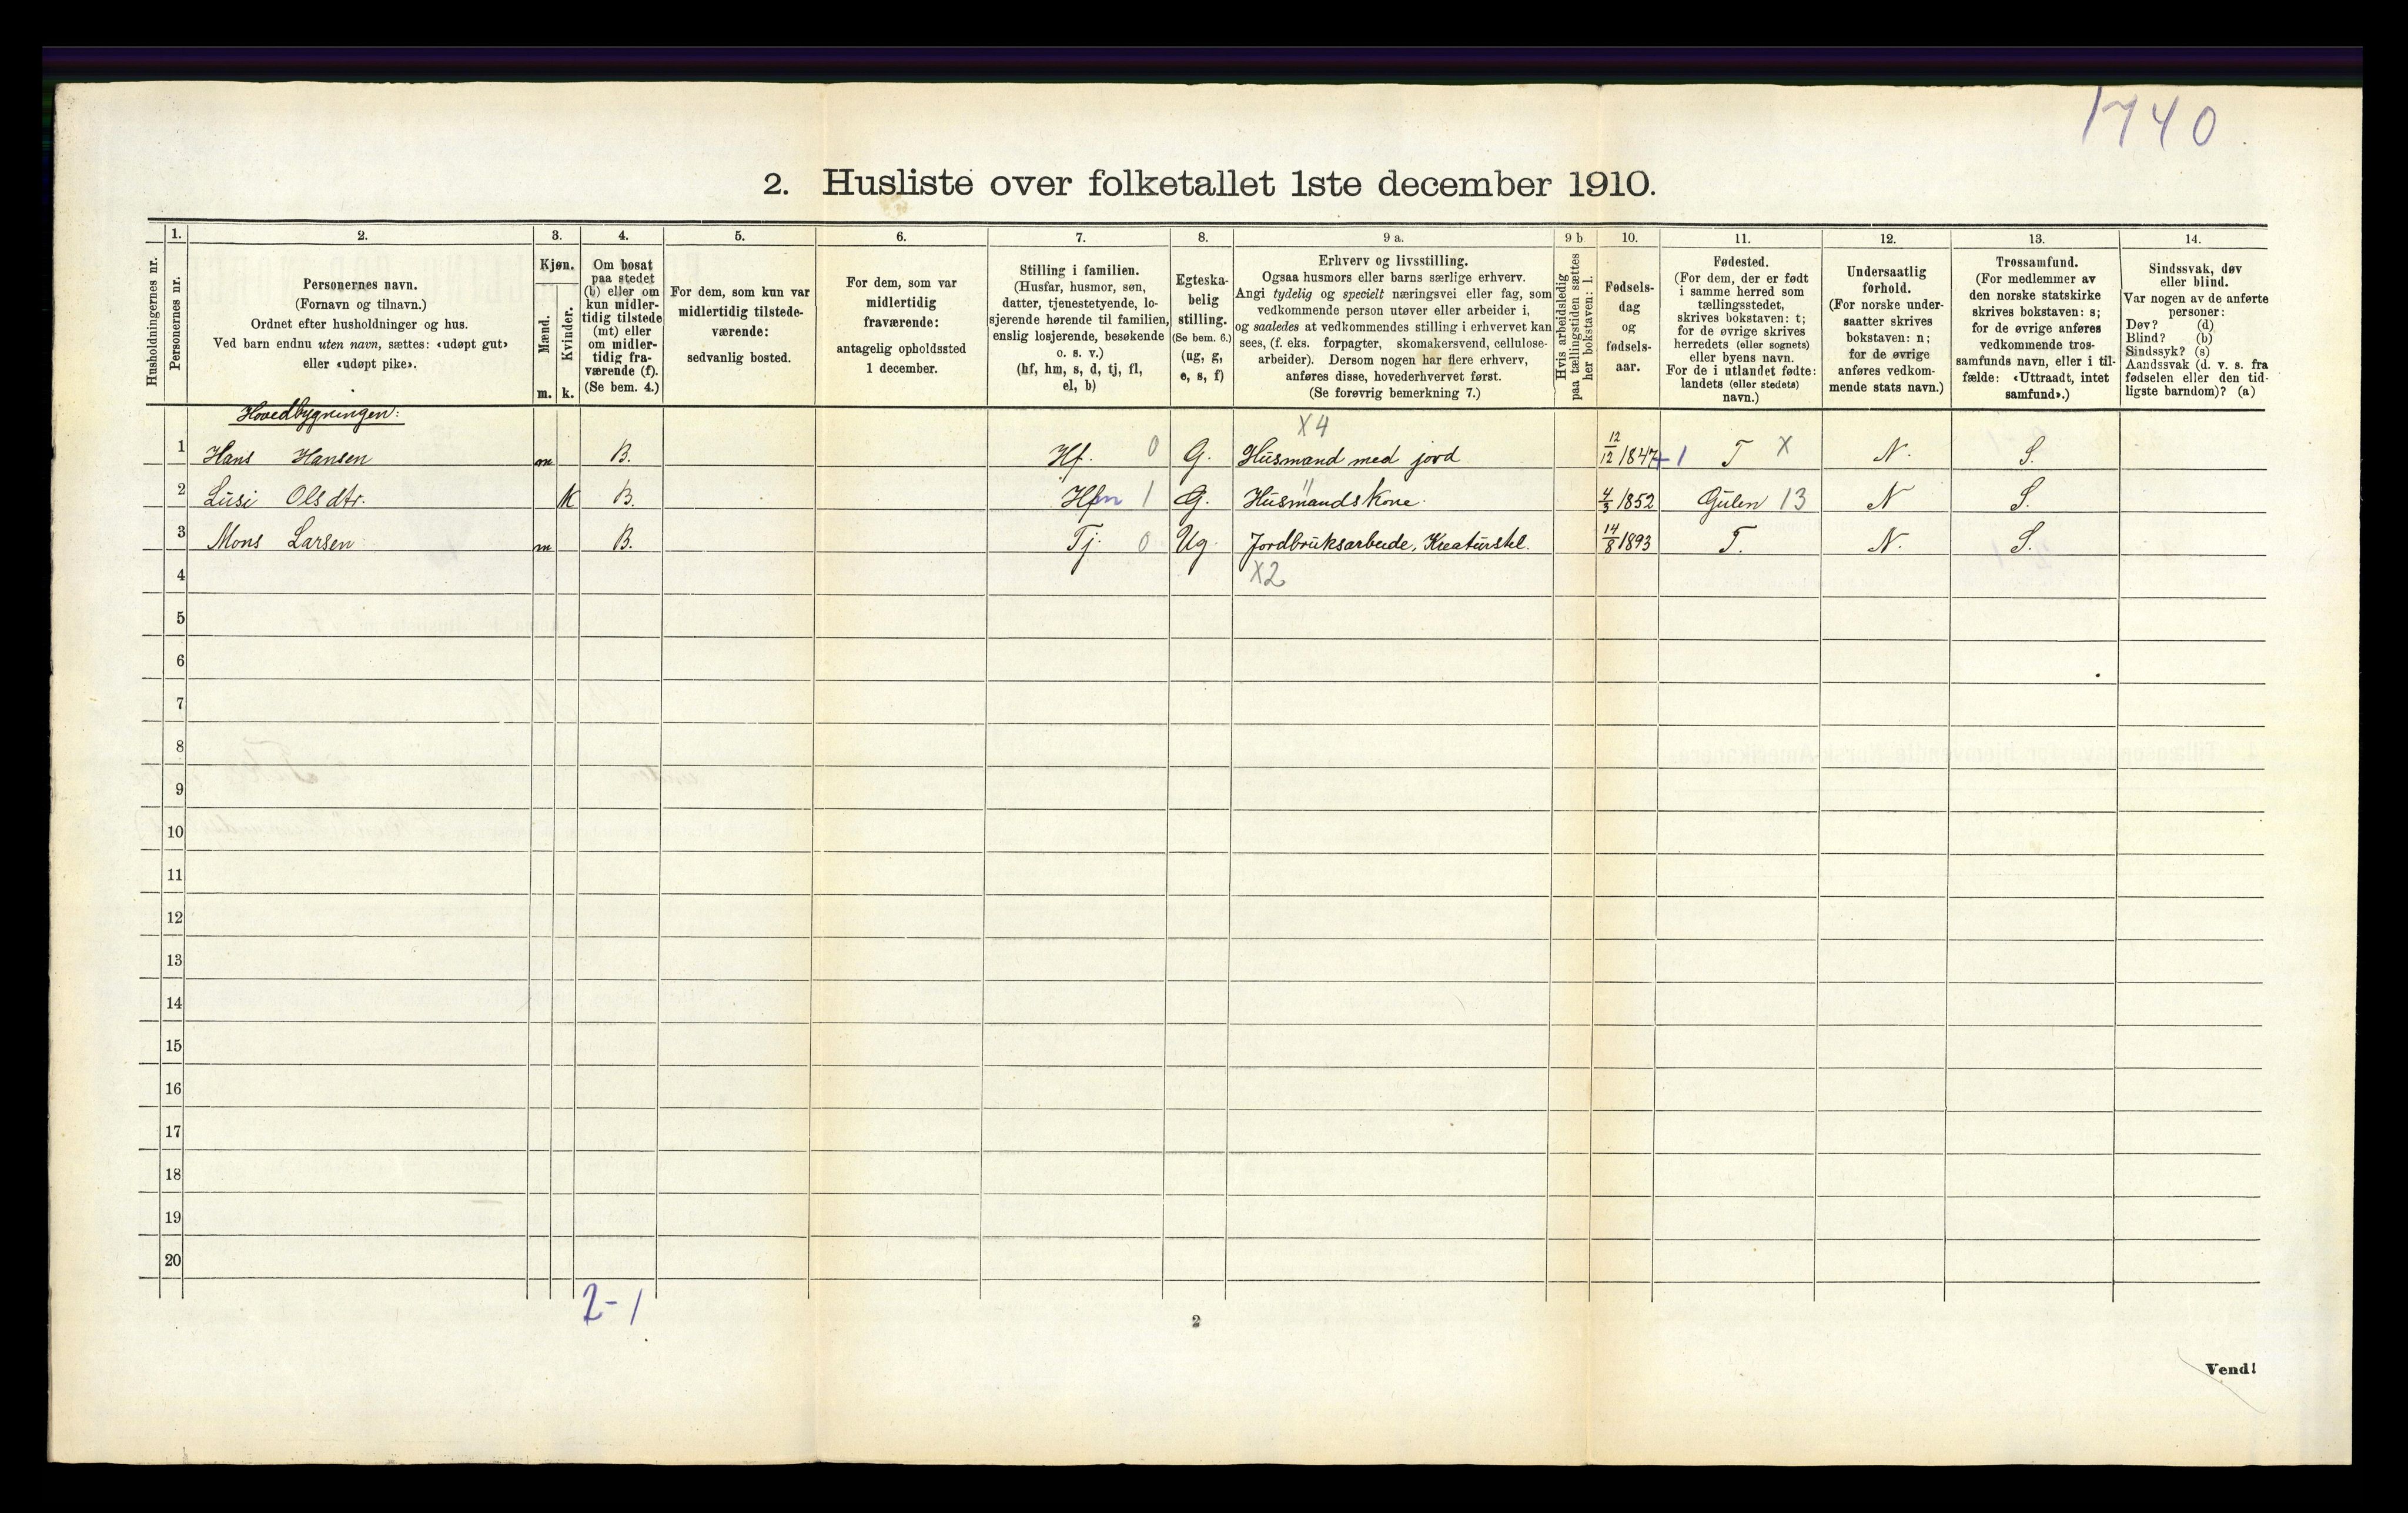 1740
2. Husliste over folketallet 1ste december 1910.
Husholdningernes nr.
1.
Personernes nr.
2.
Personernes navn.
(Fornavn og tilnavn.)
Ordnet efter husholdninger og hus.
Ved barn endnu uten navn, sættes: «udøpt gut»
eller «udøpt pike».
3.
Kjøn.
Mænd.
m.
Kvinder.
k.
4.
Om bosat
paa stedet
(b) eller om
kun midler-
tidig tilstede
(mt) eller
om midler-
tidig fra-
værende (f).
(Se bem. 4.)
5.
For dem, som kun var
midlertidig tilstede-
værende:
sedvanlig bosted.
6.
For dem, som var
midlertidig
fraværende:
antagelig opholdssted
1 december.
7.
Stilling i familien.
(Husfar, husmor, søn,
datter, tjenestetyende, lo-
sjerende hørende til familien,
enslig losjerende, besøkende
o. s. v.)
(hf, hm, s, d, tj, fl,
el, b)
8.
Egteska-
belig
stilling.
(Se bem. 6.)
(ug, g,
e, s, f)
9 a.
Erhverv og livsstilling.
Ogsaa husmors eller barns særlige erhverv.
Angi tydelig og specielt næringsvei eller fag, som
vedkommende person utøver eller arbeider i,
og saaledes at vedkommendes stilling i erhvervet kan
sees, (f. eks. forpagter, skomakersvend, cellulose-
arbeider). Dersom nogen har flere erhverv,
anføres disse, hovederhvervet først.
(Se forøvrig bemerkning 7.)
9 b
Hvis arbeidsledig
paa tællingstiden sættes
her bokstaven: l.
10.
Fødsels-
dag
og
fødsels-
aar.
11.
Fødested.
(For dem, der er født
i samme herred som
tællingsstedet,
skrives bokstaven: t;
for de øvrige skrives
herredets (eller sognets)
eller byens navn.
For de i utlandet fødte:
landets (eller stedets)
navn.)
12.
Undersaatlig
forhold.
(For norske under-
saatter skrives
bokstaven: n;
for de øvrige
anføres vedkom-
mende stats navn.)
13.
Trossamfund.
(For medlemmer av
den norske statskirke
skrives bokstaven: s;
for de øvrige anføres
vedkommende tros-
samfunds navn, eller i til-
fælde: «Uttraadt, intet
samfund».)
14.
Sindssvak, døv
eller blind.
Var nogen av de anførte
personer:
Døv? (d)
Blind? (b)
Sindssyk? (s)
Aandssvak (d. v. s. fra
fødselen eller den tid-
ligste barndom)? (a)
Hovedbygningen:
X4
1 Hans Hansen m B. Hf. 0 G. Husmand med jord 12/12 1847 +1 T X N. S.
2 Lusi Olsdtr. K B. Hfm 1 G. Husmandskone. 4/3 1852 Gulen 13 N S.
3 Mons Larsen m B. Tj. 0 Ug. Jordbruksarbeide, Kreaturstel. 14/8 1893 T. N. S.
4 X2
5
6
7
8
9
10
11
12
13
14
15
16
17
18
19
20
2-1
2
Vend!